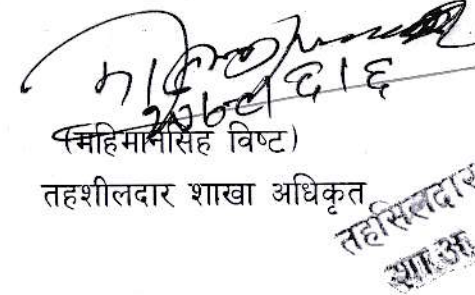 (महिमानसिंह विष्ट)
तहशीलदार शाखा अधिकृत
तहसिलदार
शा.अ